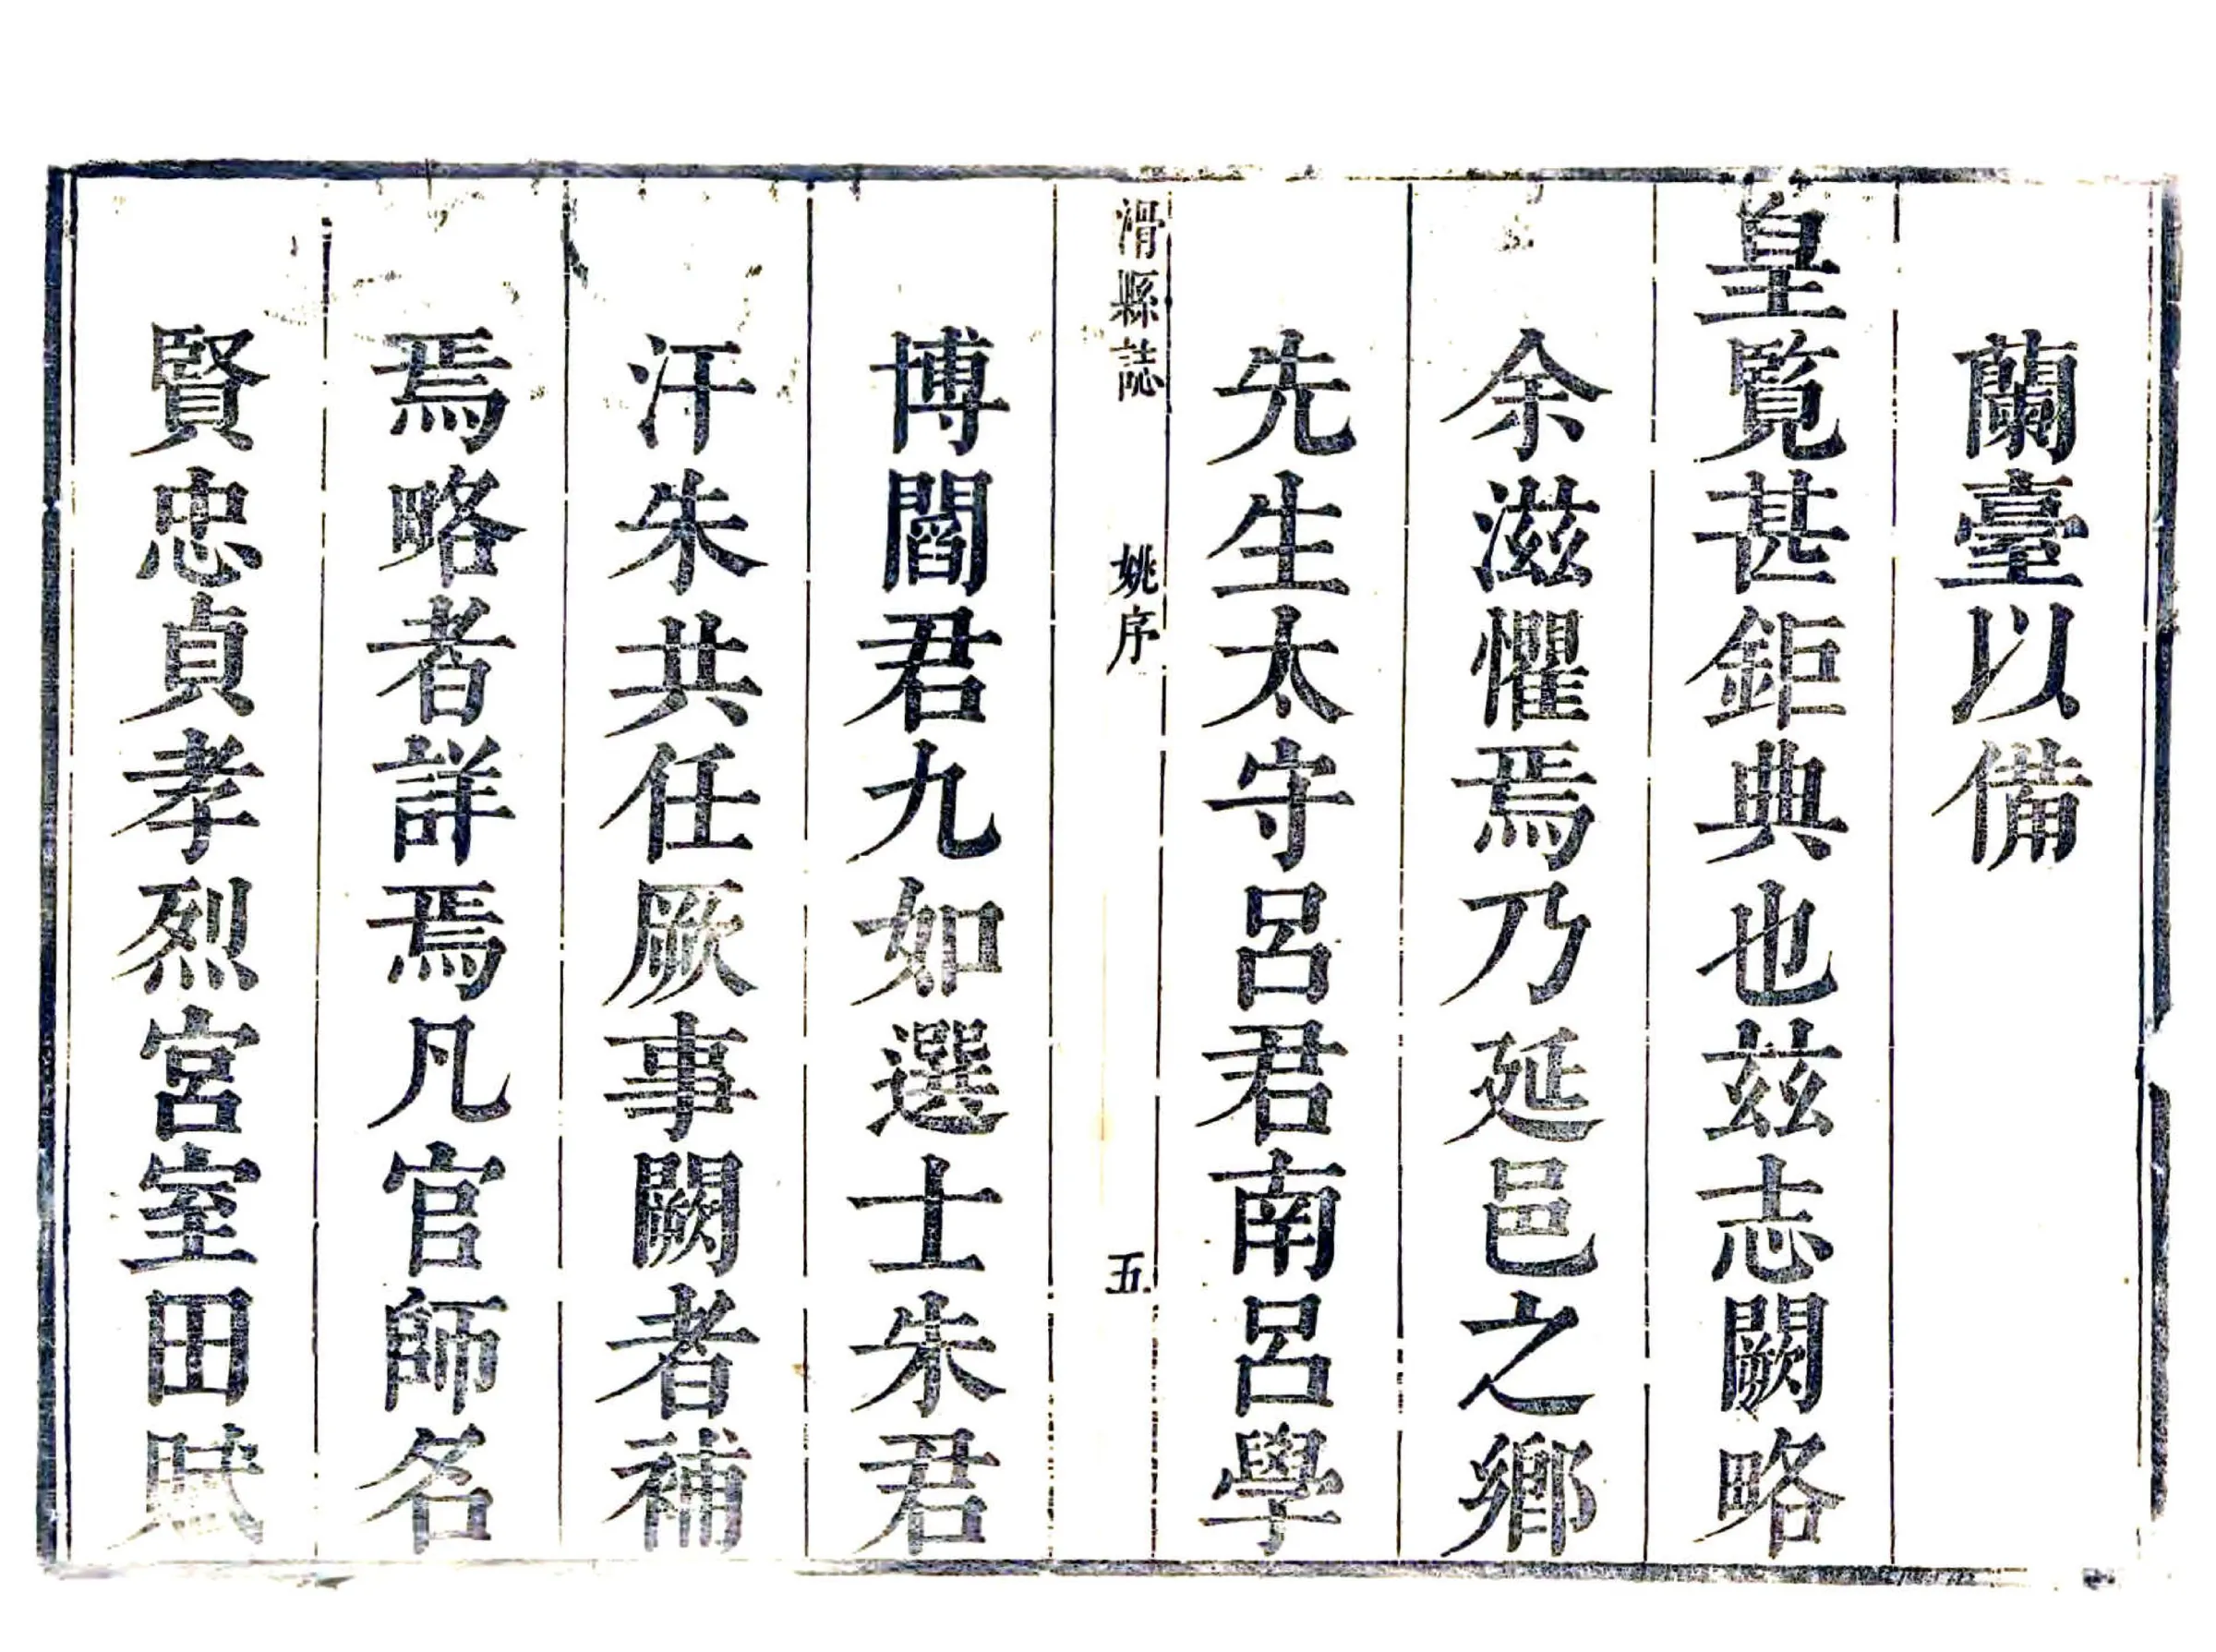 蘭臺以備
皇覧甚鉅典也兹志闕略
余滋懼焉乃延邑之鄉
先生太守呂君南呂學
滑縣誌 姚序 五
博閻君九如選士朱君
汗朱共任厥事闕者補
焉略者詳焉凡官師名
賢忠貞孝烈宮室田賦